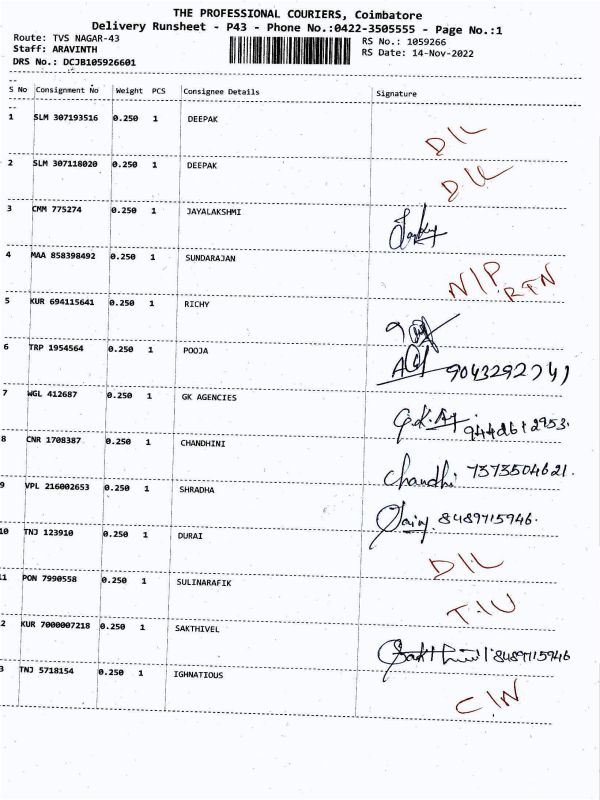 THE PROFESSIONAL COURIERS, Coimbatore
Delivery Runsheet - P43 - Phone No.:0422-3505555 - Page No.:1
Route: TVS NAGAR-43 RS No.: 1059266
Staff: ARAVINTH RS Date: 14-Nov-2022
DRS No.: DCJB105926601
S No Consignment No Weight PCS Consignee Details Signature
1 SLM 307193516 0.250 1 DEEPAK D/L
2 SLM 307118020 0.250 1 DEEPAK D/L
3 CMM 775274 0.250 1 JAYALAKSHMI
4 MAA 858398492 0.250 1 SUNDARAJAN N/P RTN
5 KUR 694115641 0.250 1 RICHY
6 TRP 1954564 0.250 1 POOJA 9043292741
7 WGL 412687 0.250 1 GK AGENCIES G.K. Ag.
8 CNR 1708387 0.250 1 CHANDHINI Chandhi 7373504621.
9 VPL 216002653 0.250 1 SHRADHA 8489715946.
10 TNJ 123910 0.250 1 DURAI D/L
11 PON 7990558 0.250 1 SULINARAFIK T.I.U
2 KUR 7000007218 0.250 1 SAKTHIVEL 8489715946
3 TNJ 5718154 0.250 1 IGHNATIOUS C/N